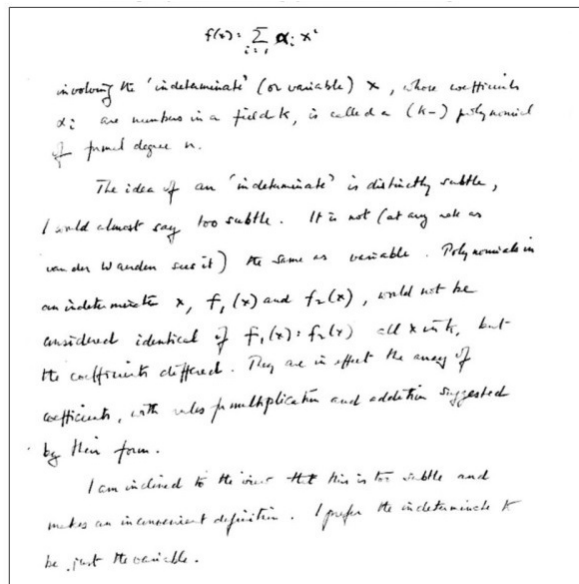 f(x) = Σ αᵢ xⁱ
i = 1
involving the 'indeterminate' (or variable) x, whose coefficients
αᵢ are numbers in a field k, is called a (k-) polynomial
of formal degree n.
The idea of an 'indeterminate' is distinctly subtle,
I would almost say too subtle. It is not (at any rate as
van der Waerden sees it) the same as variable. Polynomials in
an indeterminate x, f₁(x) and f₂(x), would not be
considered identical if f₁(x) = f₂(x) all x in k, but
the coefficients differed. They are in effect the array of
coefficients, with rules for multiplication and addition suggested
by their form.
I am inclined to the view that this is too subtle and
makes an inconvenient definition. I prefer the indeterminate k
be just the variable.